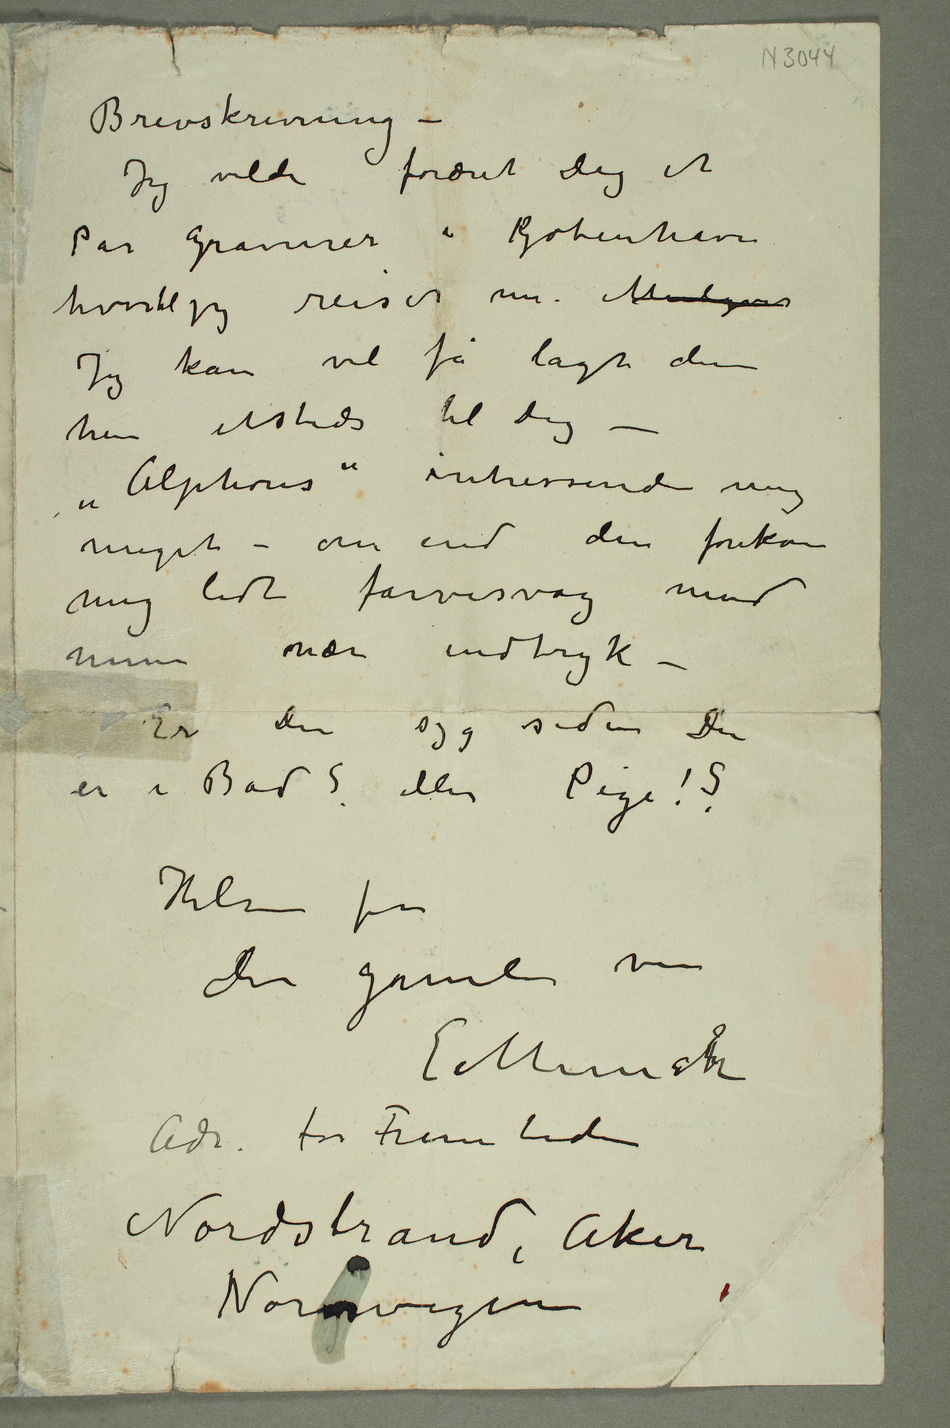 N 3044
Brevskrivning –
Jeg vilde foræret Dig et
Par Gravurer i Kjøbenhavn
hvortil jeg reiser nu.
Jeg kan vel få lagt dem
hen etsteds til Dig –
„Alphons" intresserede mig
meget – om end den forekom
mig lidt farvesvag mod
mine nær indtryk –
Er du syg siden Du
er i Bad? eller Pige!?
Hilsen fra
din gamle ven
E Munch
Adr. for Fremtiden
Nordstrand, Aker
Norwegen